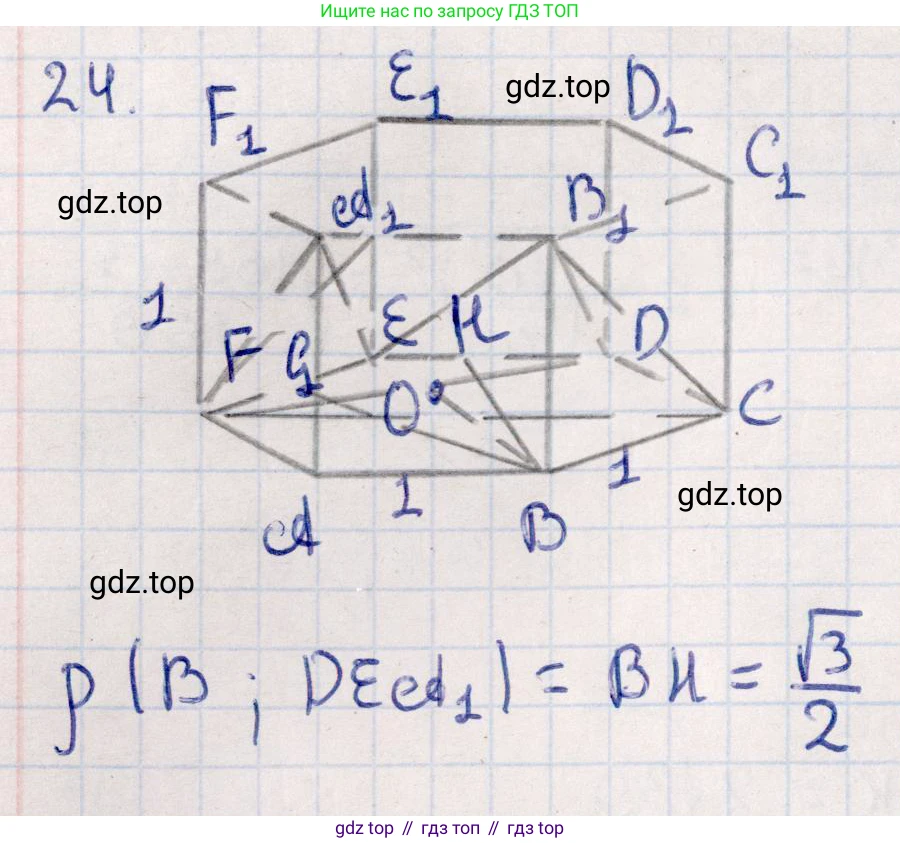 Ищите нас по запросу ГДЗ ТОП
24.
E₁
gdz.top
D₁
F₁
C₁
gdz.top
A₁
B₁
1
F
G
E
H
D
O
C
1
1
gdz.top
A
B
gdz.top
ρ(B; DEA₁) = BH = √3/2
gdz top // гдз топ // gdz top